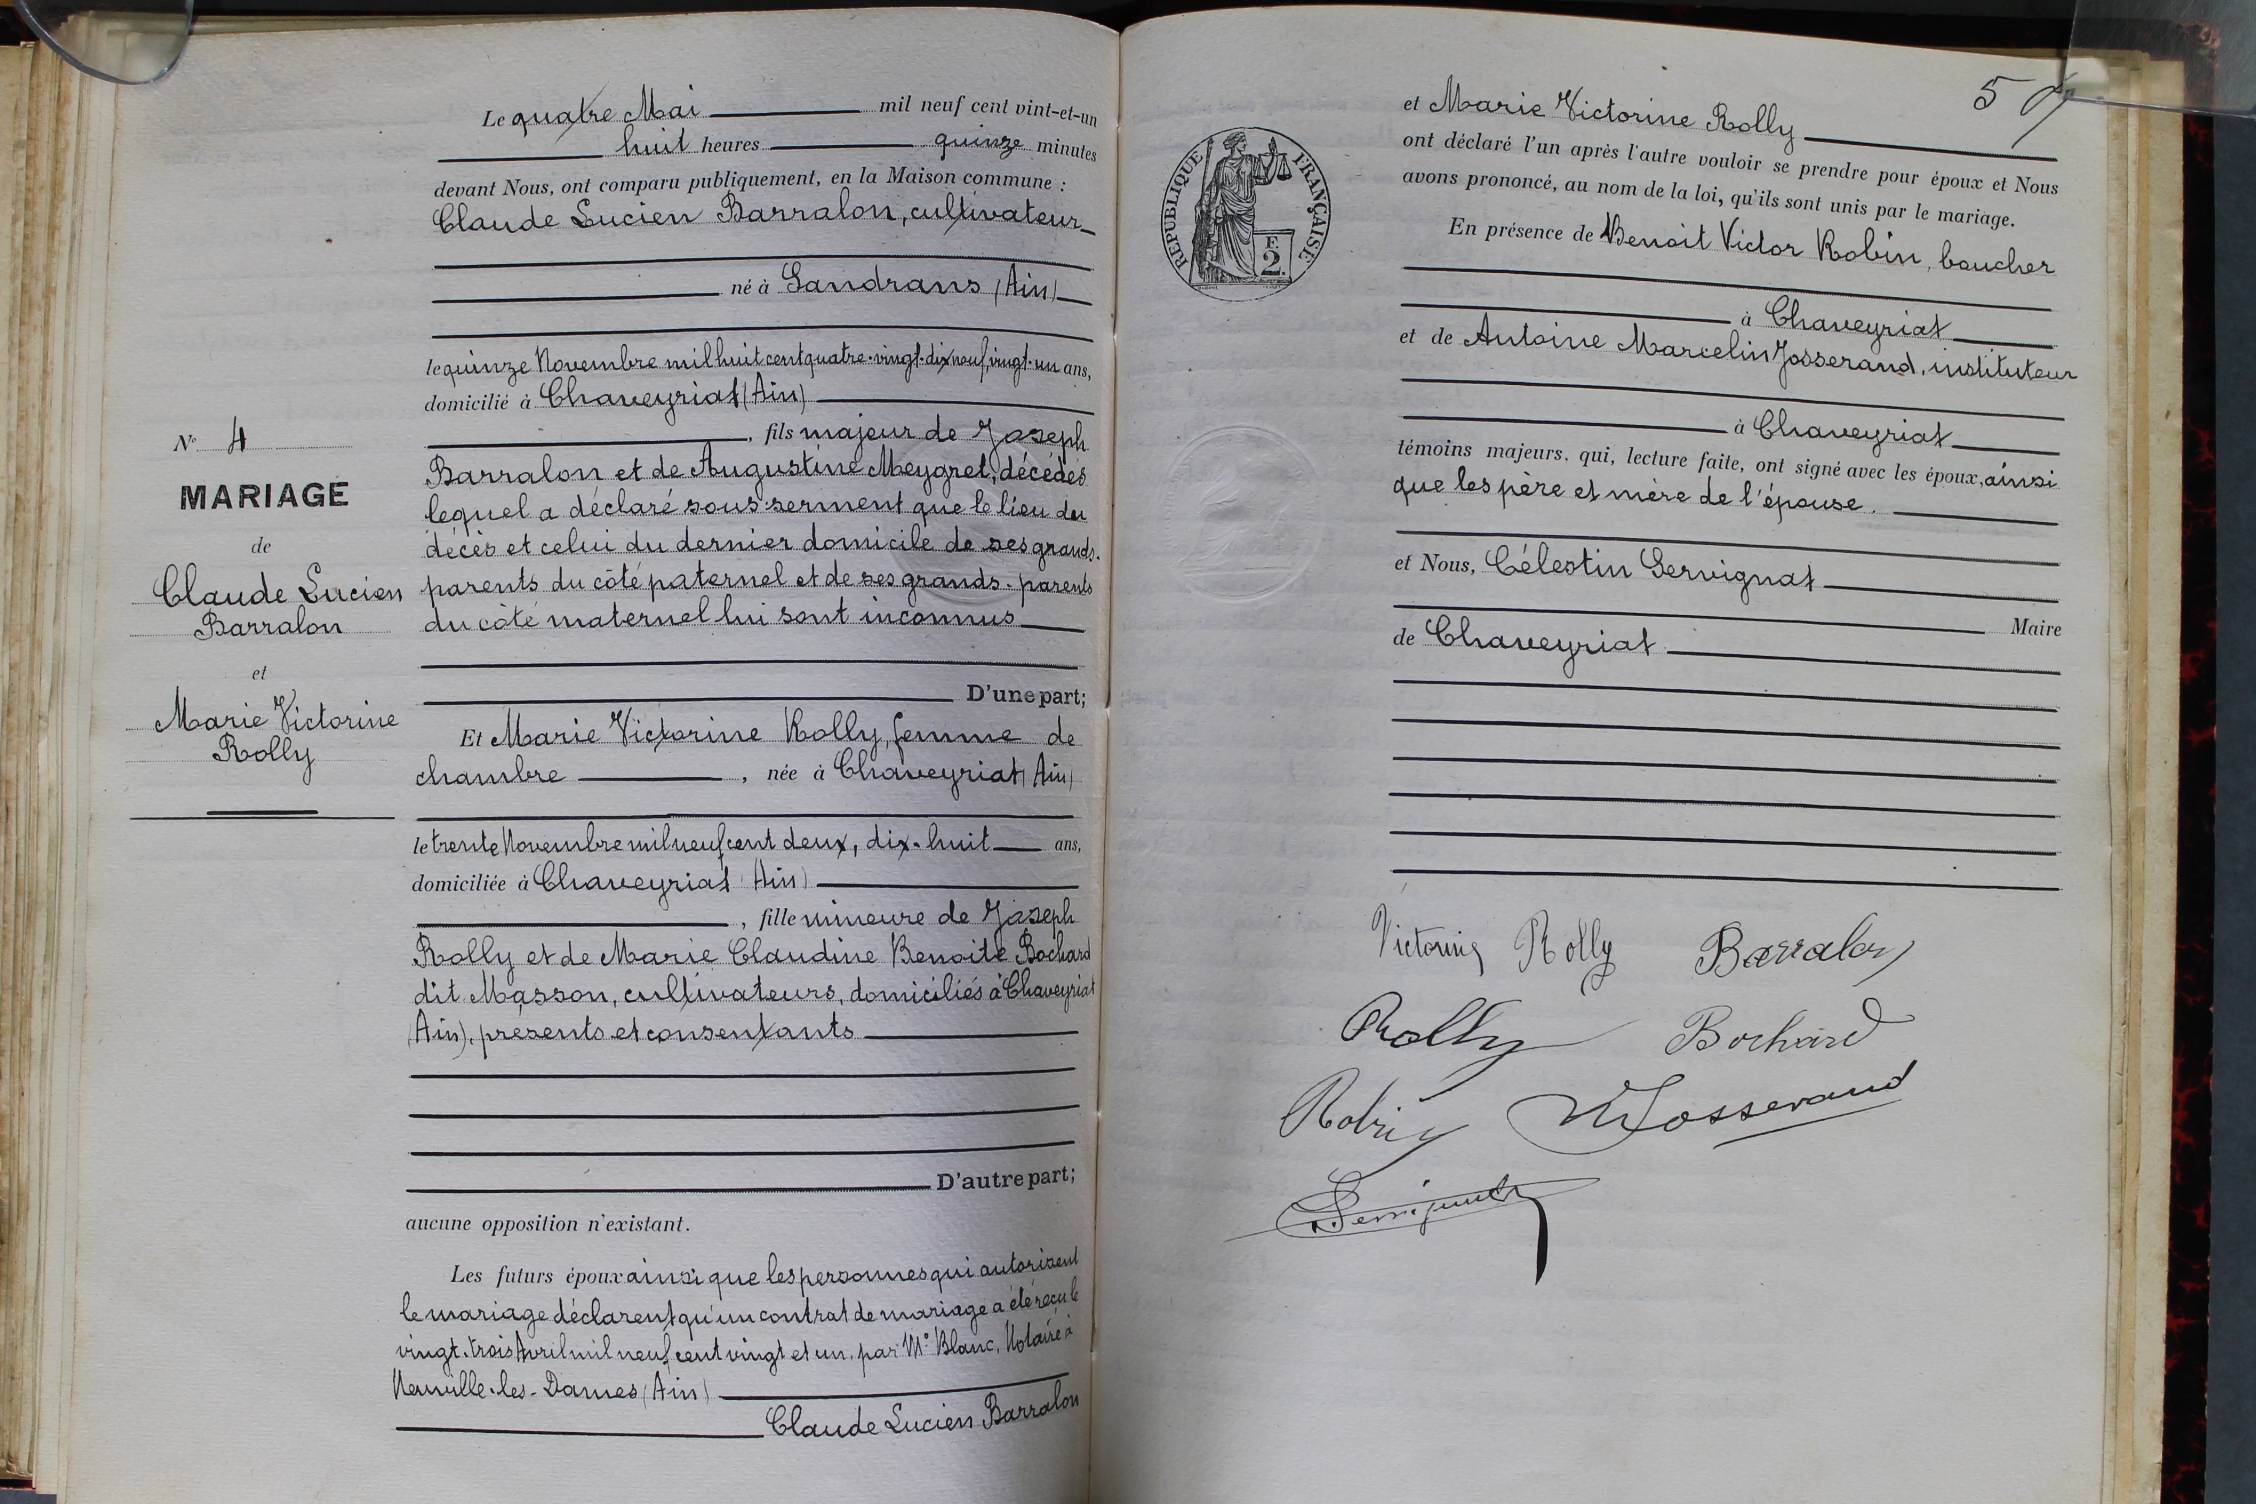 Le quatre Mai mil neuf cent vint-et-un
huit heures quinze minutes
devant Nous, ont comparu publiquement, en la Maison commune :
Claude Lucien Barralon, cultivateur
né à Sandrans (Ain)
le quinze Novembre mil huit cent quatre-vingt-dix neuf, vingt-un ans,
domicilié à Chaveyriat (Ain)
, fils majeur de Joseph
Barralon et de Augustine Meygret, décédés
lequel a déclaré sous serment que le lieu du
décès et celui du dernier domicile de ses grands-
parents du côté paternel et de ses grands-parents
du côté maternel lui sont inconnus
D'une part;
Et Marie Victorine Rolly, femme de
chambre , née à Chaveyriat (Ain)
le trente Novembre mil neuf cent deux, dix-huit ans,
domiciliée à Chaveyriat (Ain)
, fille mineure de Joseph
Rolly et de Marie Claudine Benoite Bochard
dit Masson, cultivateurs, domiciliés à Chaveyriat
(Ain), présents et consentants
D'autre part;
aucune opposition n'existant.
Les futurs époux ainsi que les personnes qui autorisent
le mariage déclarent qu'un contrat de mariage a été reçu le
vingt-trois Avril mil neuf cent vingt et un, par Me Blanc, Notaire à
Neuville-les-Dames (Ain)
Claude Lucien Barralon
No 4
MARIAGE
de
Claude Lucien
Barralon
et
Marie Victorine
Rolly
RÉPUBLIQUE FRANÇAISE
F.
2.
et Marie Victorine Rolly
ont déclaré l'un après l'autre vouloir se prendre pour époux et Nous
avons prononcé, au nom de la loi, qu'ils sont unis par le mariage.
En présence de Benoit Victor Robin, boucher
à Chaveyriat
et de Antoine Marcelin Josserand, instituteur
à Chaveyriat
témoins majeurs, qui, lecture faite, ont signé avec les époux, ainsi
que les père et mère de l'épouse.
et Nous, Célestin Servignat
Maire
de Chaveyriat
Victorine Rolly Barralon
Rolly Bochard
Robin Josserand
Servignat